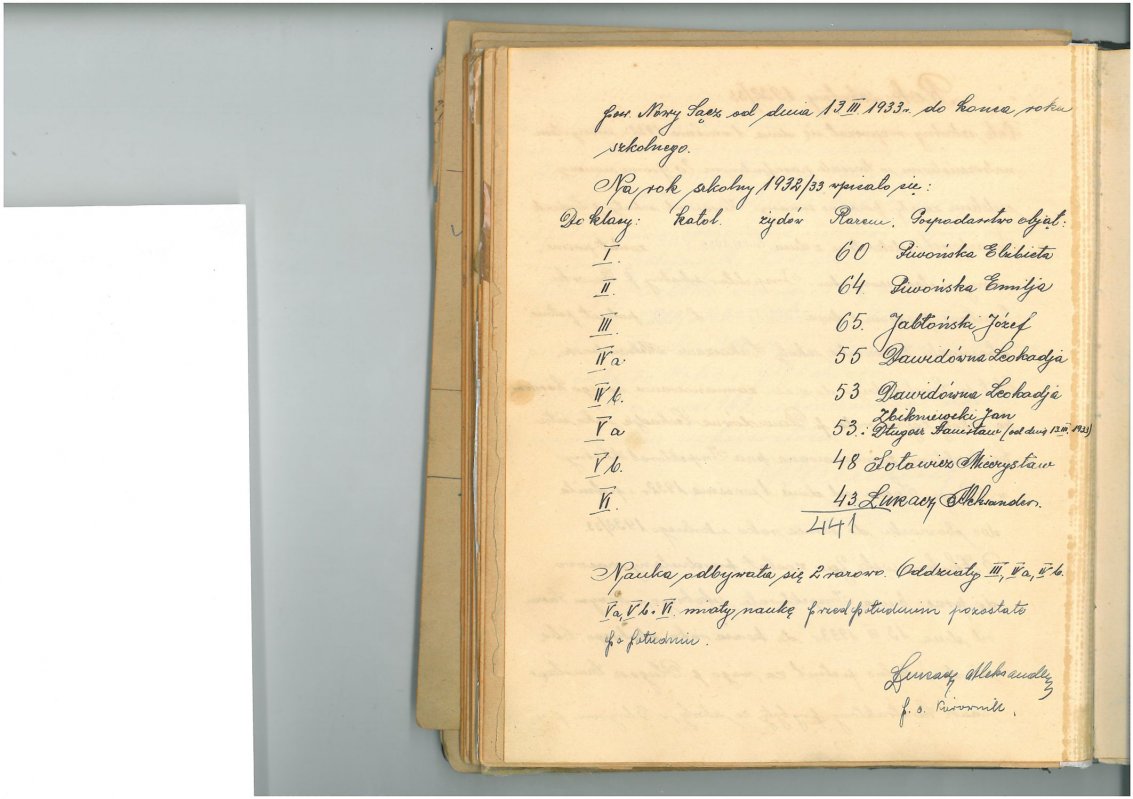 pow. Nowy Sącz od dnia 13 III 1933 r. do końca roku
szkolnego.
Na rok szkolny 1932/33 wpisało się:
Do klasy: katol. żydów Razem. Gospodarstwo objął:
I. 60 Piwońska Elżbieta
II. 64 Piwońska Emilja
III. 65. Jabłoński Józef
IV a. 55 Dawidówna Leokadja
IV b. 53 Dawidówna Leokadja
V a 53. Zbikniewski Jan
i Długosz Stanisław (od dnia 13 III. 1933)
V b. 48 Mieczysław
VI. 43 Łukacz Aleksander.
441
Nauka odbywała się 2 razowo. Oddziały III, IV a, IV b.
V a, V b i VI. miały naukę przedpołudniem pozostałe
po południu.
Łukacz Aleksander
p. o. kierownik.